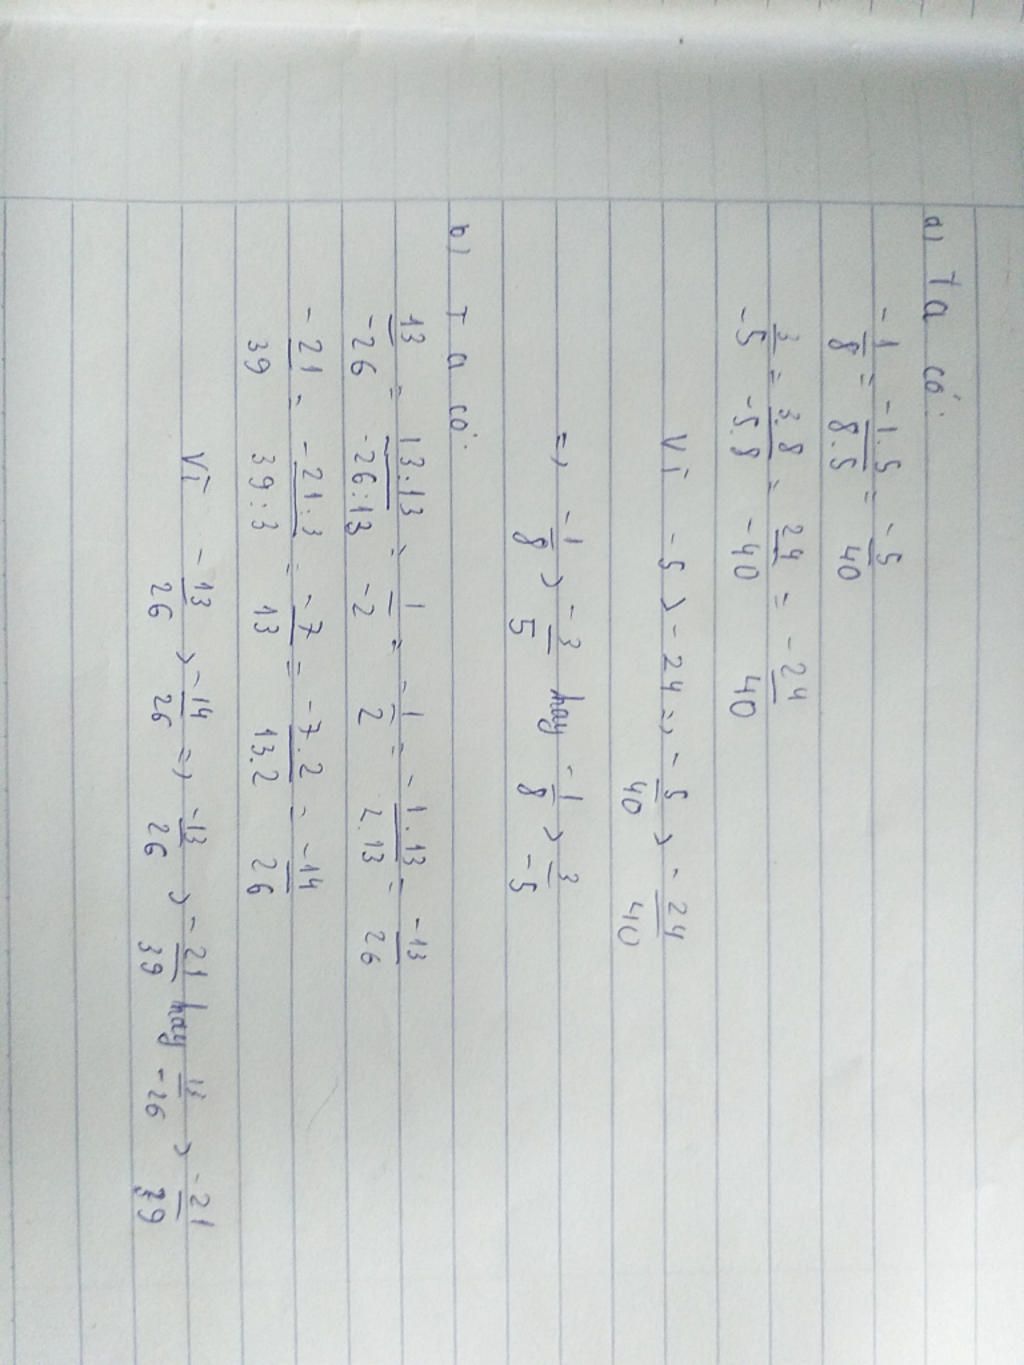 a) Ta có:
-1/8 = -1.5/8.5 = -5/40
3/-5 = 3.8/-5.8 = 24/-40 = -24/40
Vì -5 > -24 => -5/40 > -24/40
=> -1/8 > -3/5 hay -1/8 > 3/-5
b) Ta có:
13/-26 = 13:13/-26:13 = 1/-2 = -1/2 = -1.13/2.13 = -13/26
-21/39 = -21:3/39:3 = -7/13 = -7.2/13.2 = -14/26
Vì -13/26 > -14/26 => -13/26 > -21/39 hay 13/-26 > -21/39